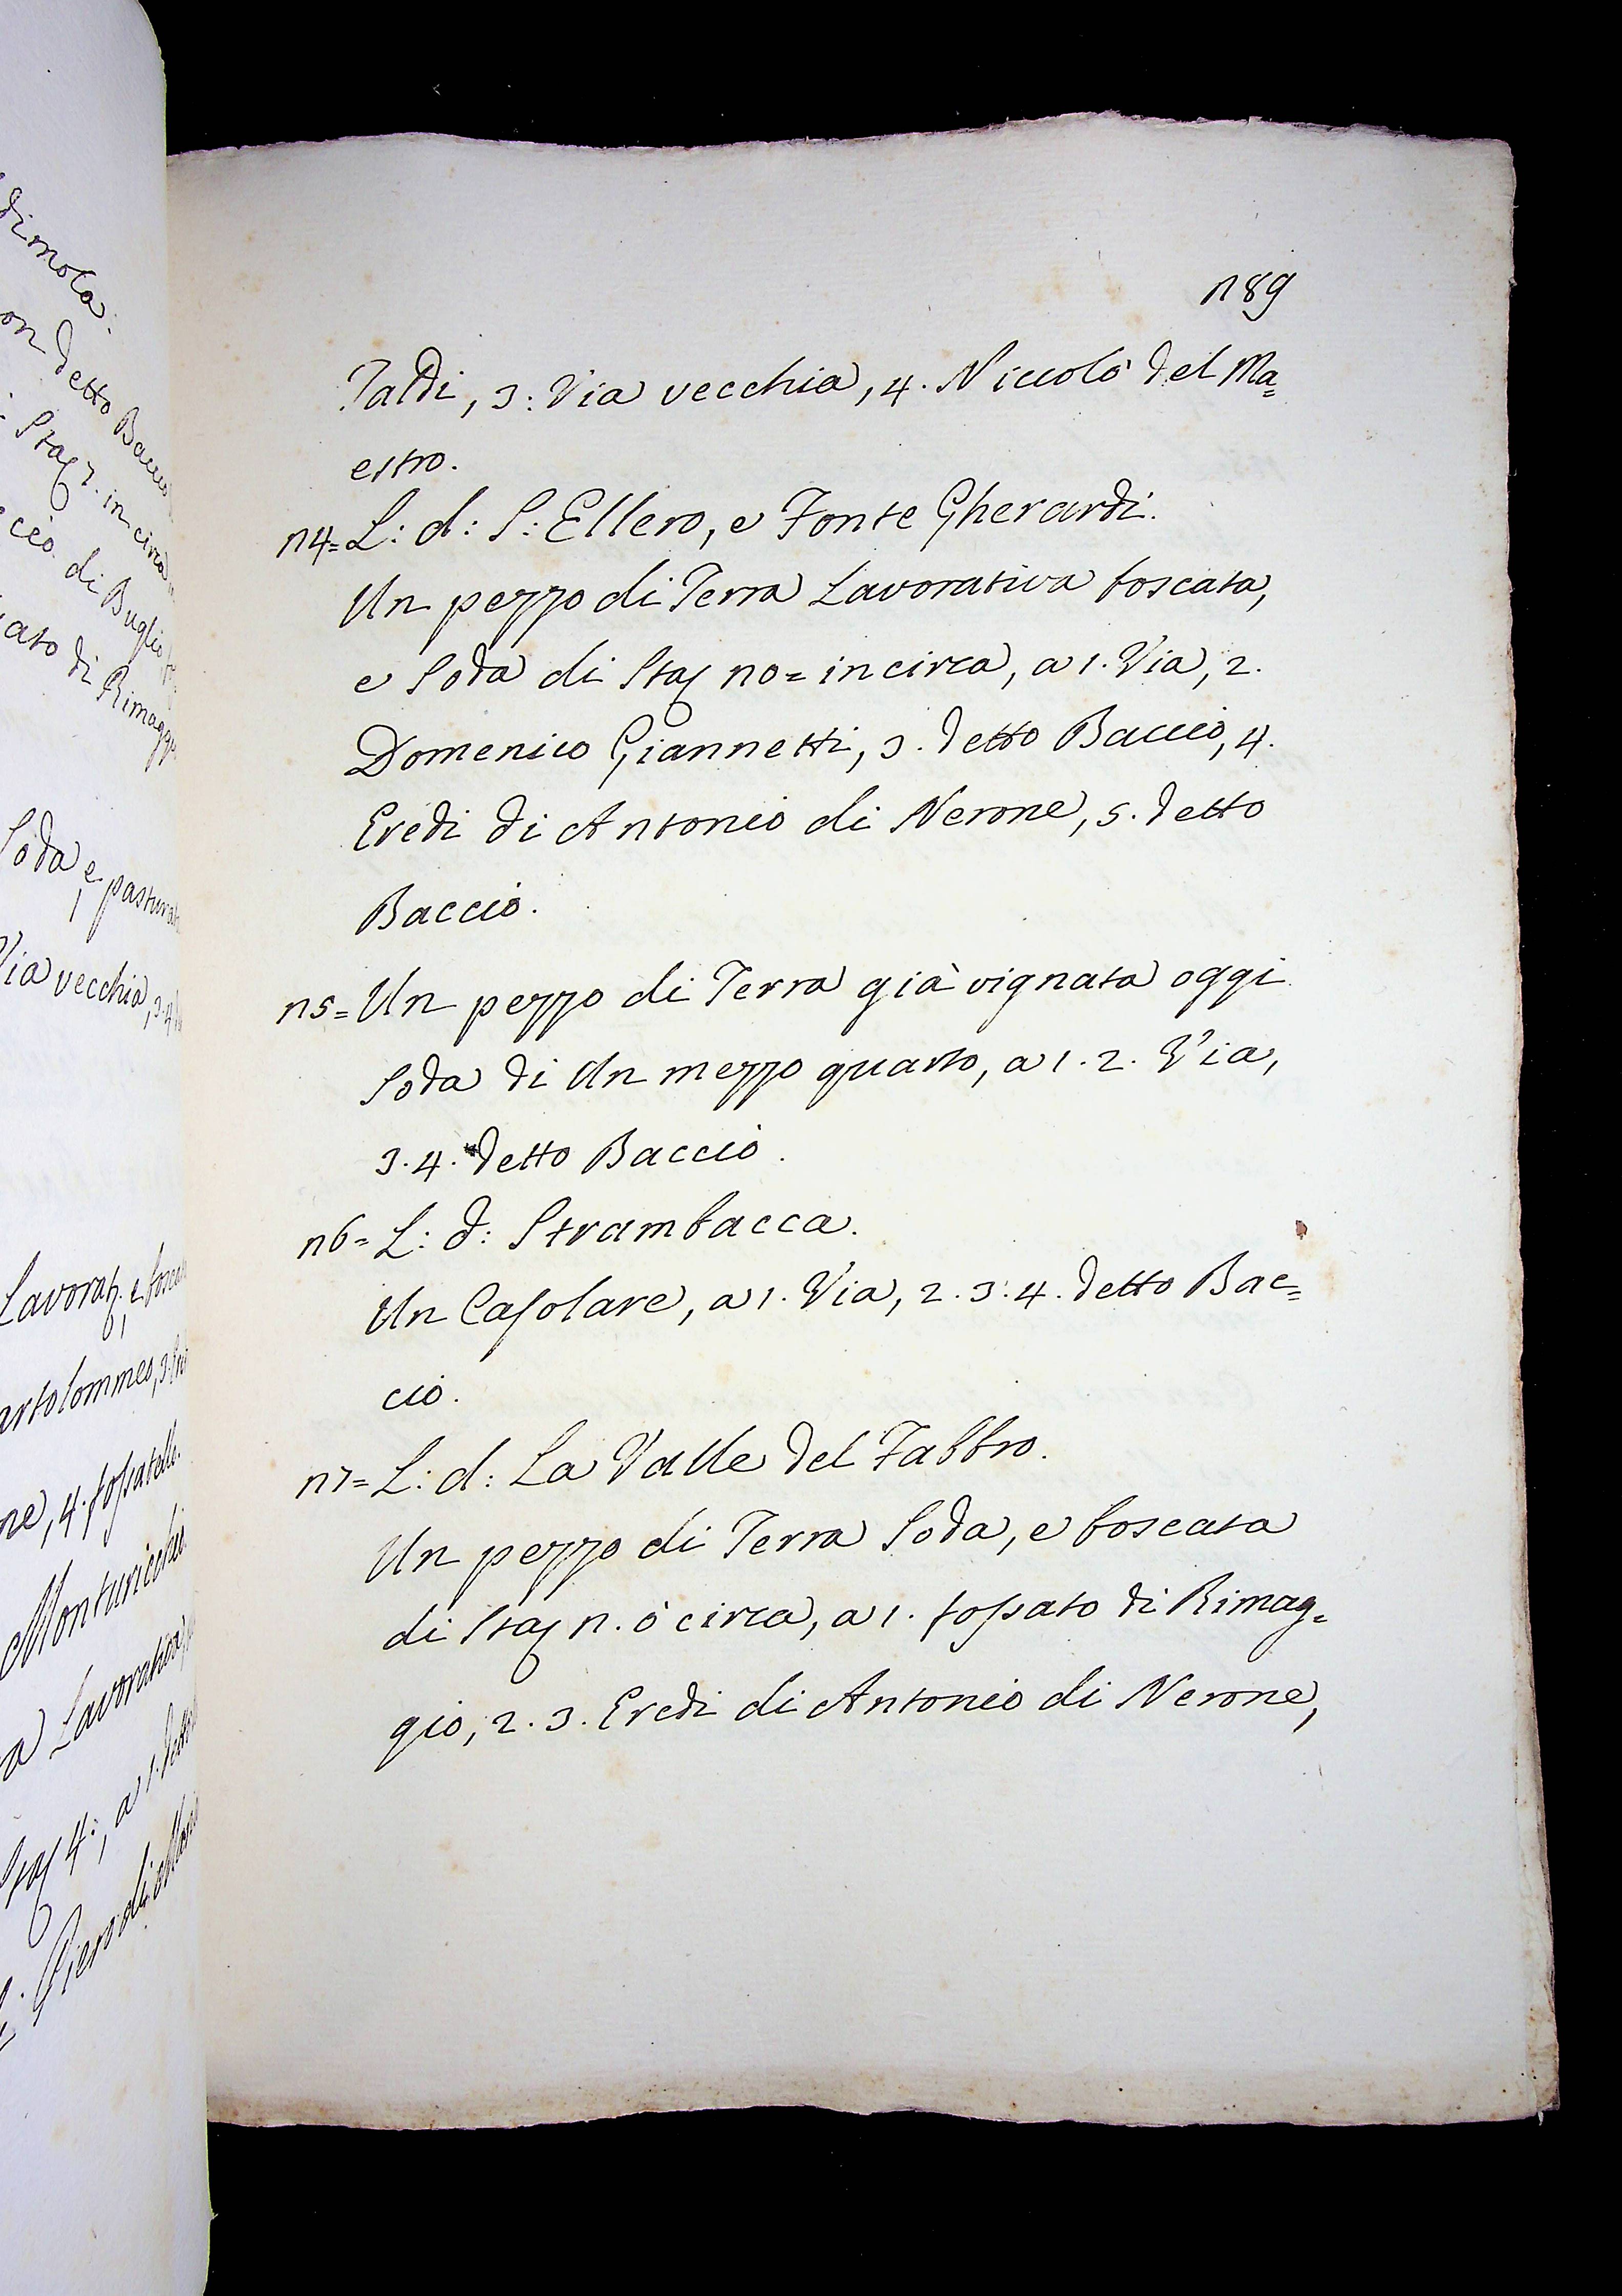 189
Taldi, 3: Via vecchia, 4. Niccolò del Ma=
estro.
14= L: d: S: Ellero, e Fonte Gherardi.
Un pezzo di Terra Lavorativa boscata,
e Soda di Sta 10= in circa, a 1. Via, 2.
Domenico Giannetti, 3. detto Baccio, 4.
Eredi di Antonio di Nerone, 5. detto
Baccio.
15= Un pezzo di Terra già vignata oggi
Soda di Un mezzo quarto, a 1. 2. Via,
3. 4. detto Baccio.
16= L: d: Strambacca.
Un Casolare, a 1. Via, 2. 3. 4. detto Bac=
cio.
17= L: d: La Valle del Fabbro.
Un pezzo di Terra Soda, e boscata
di Sta circa, a 1. fossato di Rimag=
gio, 2. 3. Eredi di Antonio di Nerone,
on detto Baccio
Sta 7. in circa
di Buglio
ato di Rimaggi
Soda e
Via vecchia, 3. 4
artolommeo, 3.
ne, 4. fossatello.
Monturicchio
a Lavorativa
Sta 4:, a 1. detto
Piero di